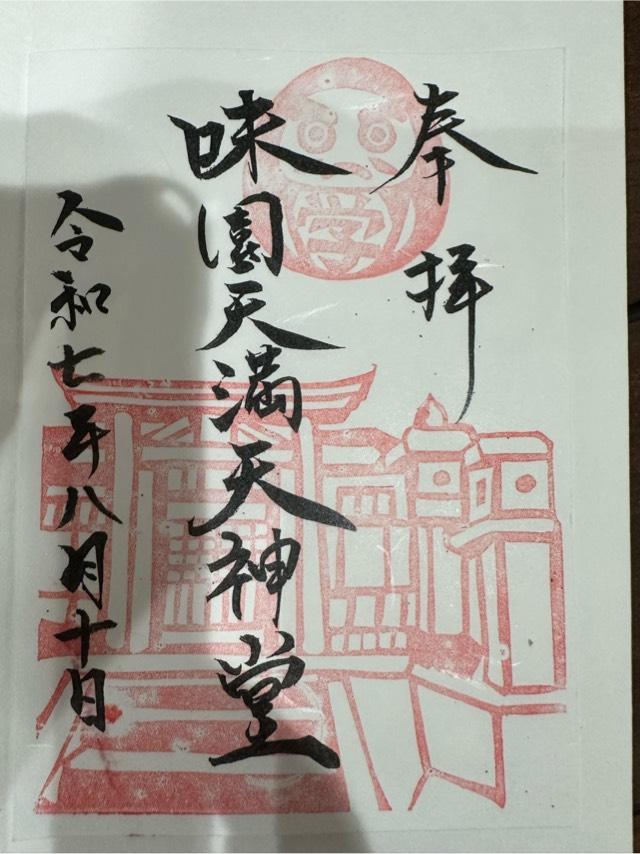 奉拝
学
味園天満天神堂
令和七年八月十日